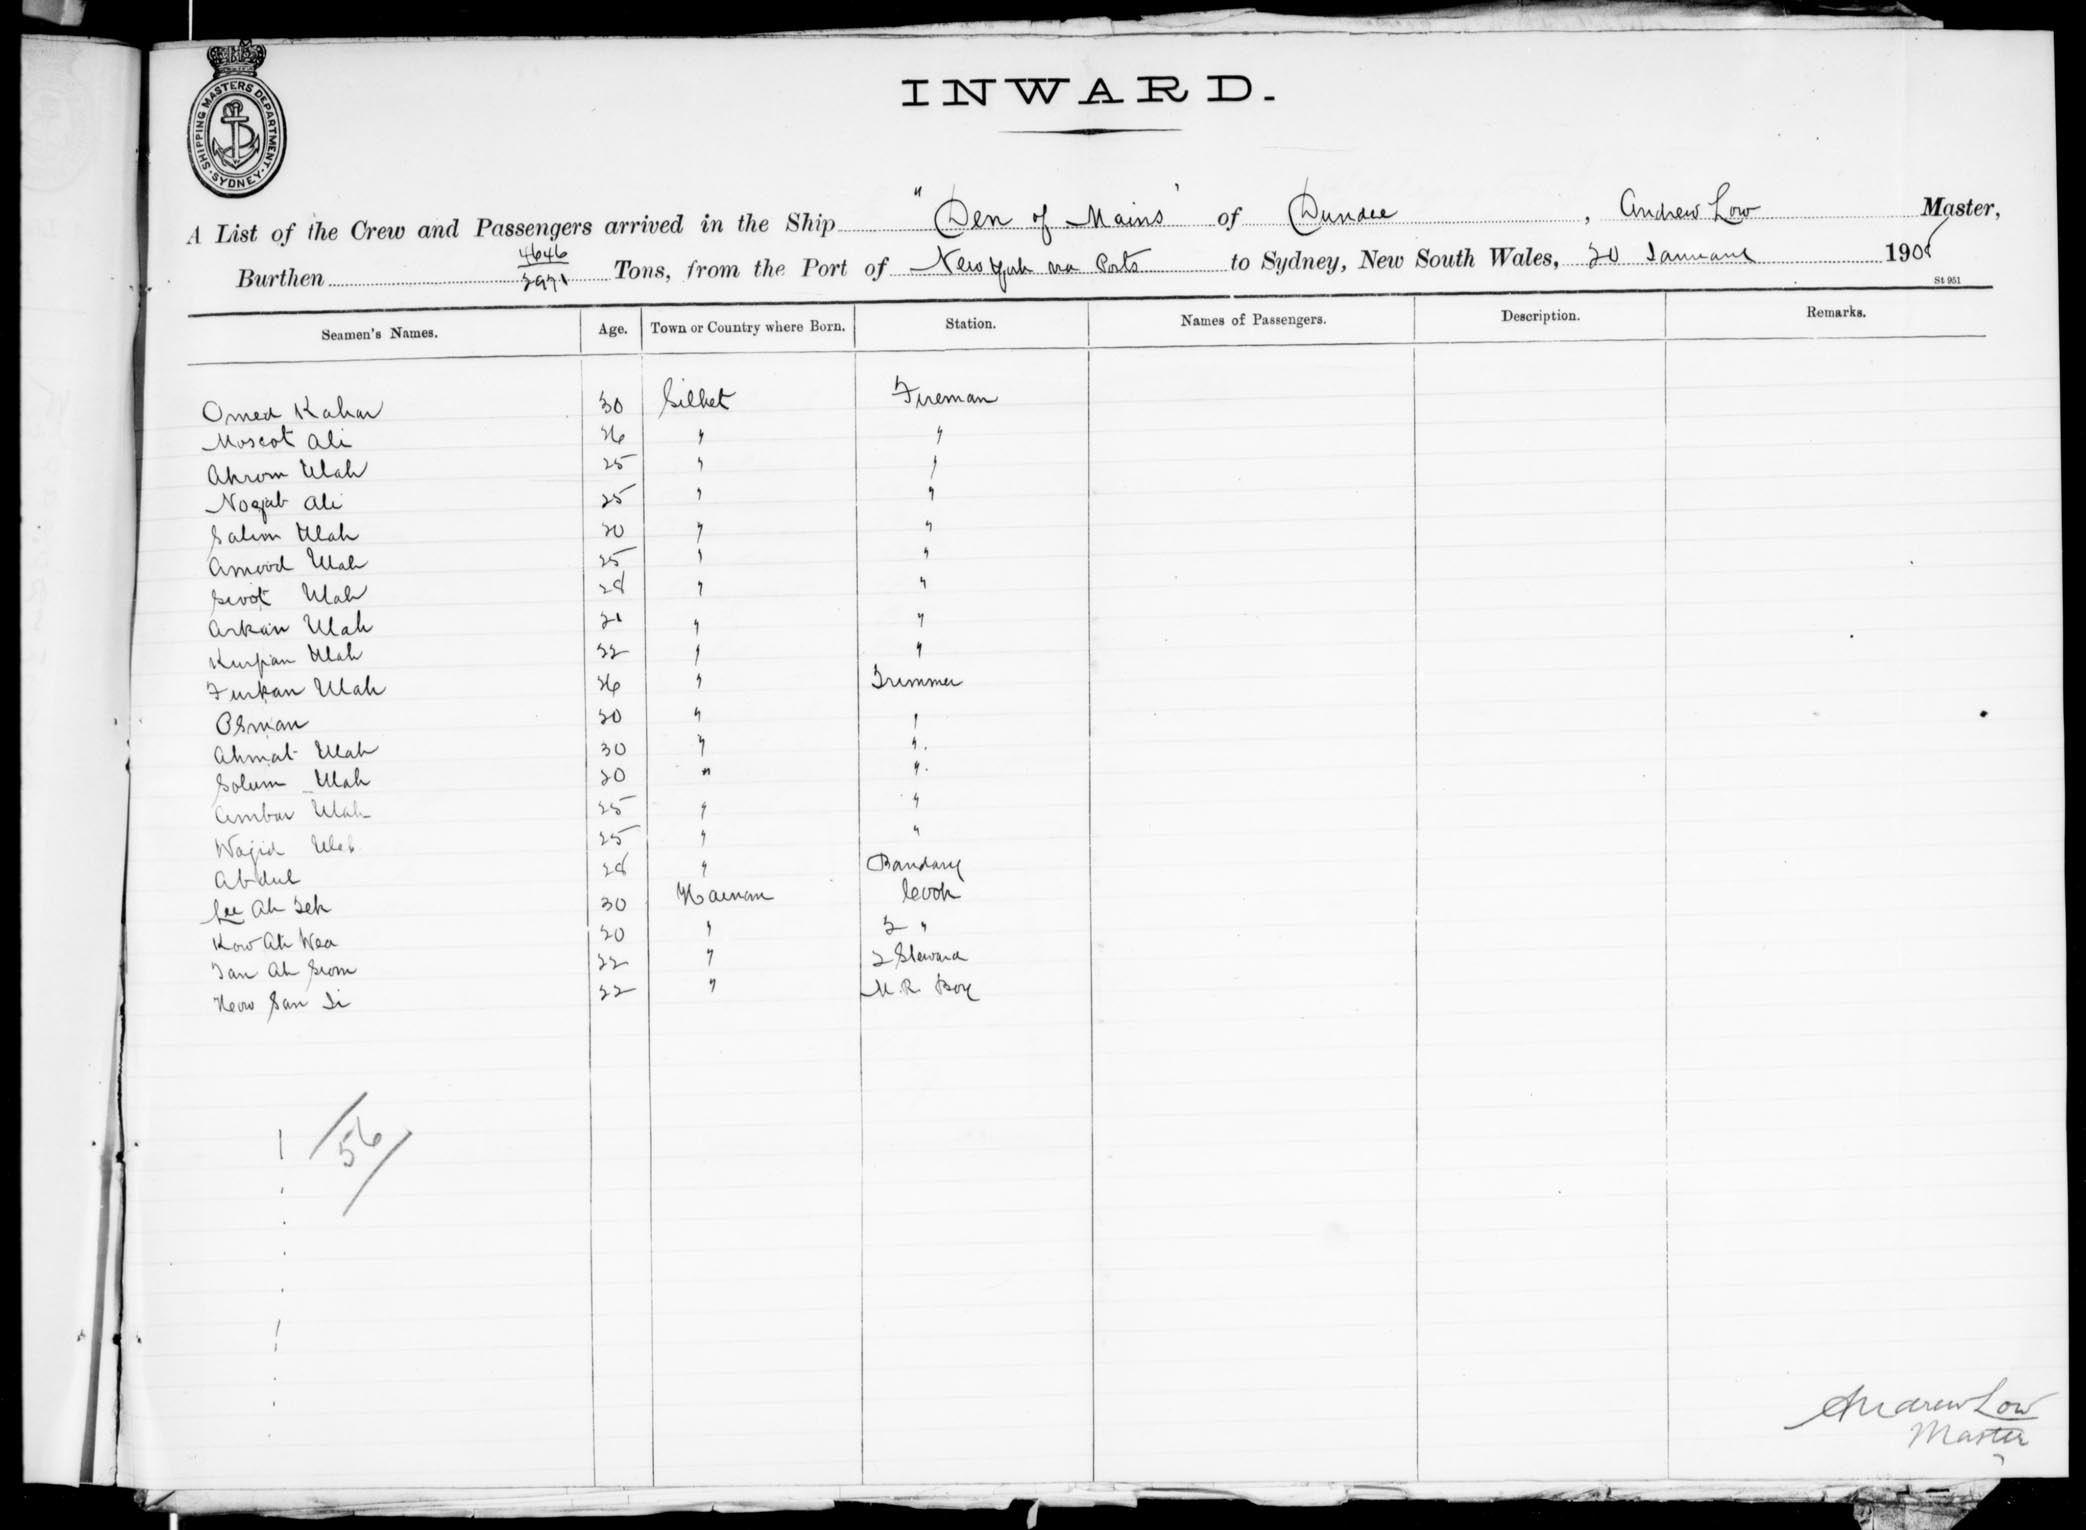 SHIPPING MASTERS DEPARTMENT · SYDNEY ·
INWARD.
A List of the Crew and Passengers arrived in the Ship "Den of Mains" of Dundee, Andrew Low Master,
Burthen 4646 / 2971 Tons, from the Port of New York via Ports to Sydney, New South Wales, 20 January 1908
St 951
Seamen's Names. Age. Town or Country where Born. Station. Names of Passengers. Description. Remarks.
Omed Kahar 30 Silhet Fireman
Moscot Ali 26 " "
Akrom Ulah 25 " "
Nogab Ali 25 " "
Salim Ulah 20 " "
Amood Ulah 25 " "
Sivot Ulah 28 " "
Arkan Ulah 21 " "
Kurpan Ulah 22 " "
Furkan Ulah 26 " Trimmer
Osman 20 " "
Ahmat Ulah 30 " "
Solum Ulah 20 " "
Ambar Ulah 25 " "
Wajid Ulah 25 " "
Abdul 28 " Bandary
Lee Ah Tek 30 Hainan Cook
Kow Ah Wea 20 " 2 "
Tan Ah Siom 22 " 2 Steward
Heow San Ti 22 " M. R. Boy
56
Andrew Low
Master